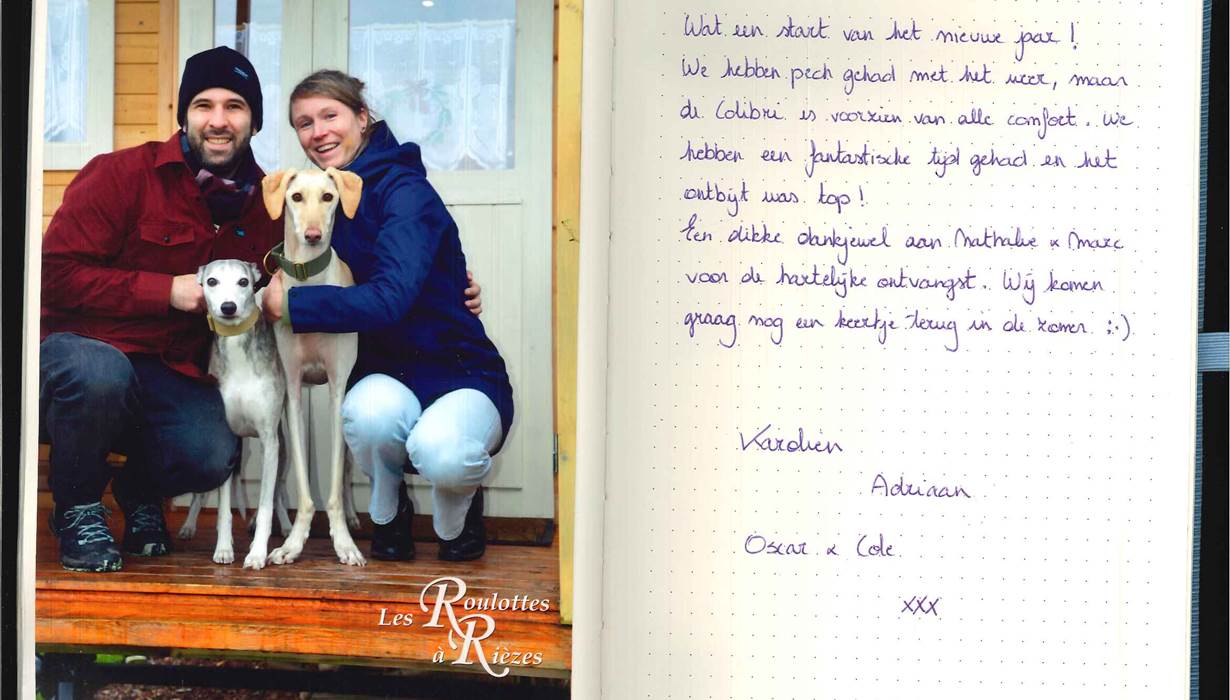 Les Roulottes
à Rièzes
Wat een start van het nieuwe jaar !
We hebben pech gehad met het weer, maar
de Colibri is voorzien van alle comfort. We
hebben een fantastische tijd gehad en het
ontbijt was top !
Een dikke dankjewel aan Nathalie & Marc
voor de hartelijke ontvangst. Wij komen
graag nog een keertje terug in de zomer ;-)
Karolien
Adriaan
Oscar & Cole
xxx